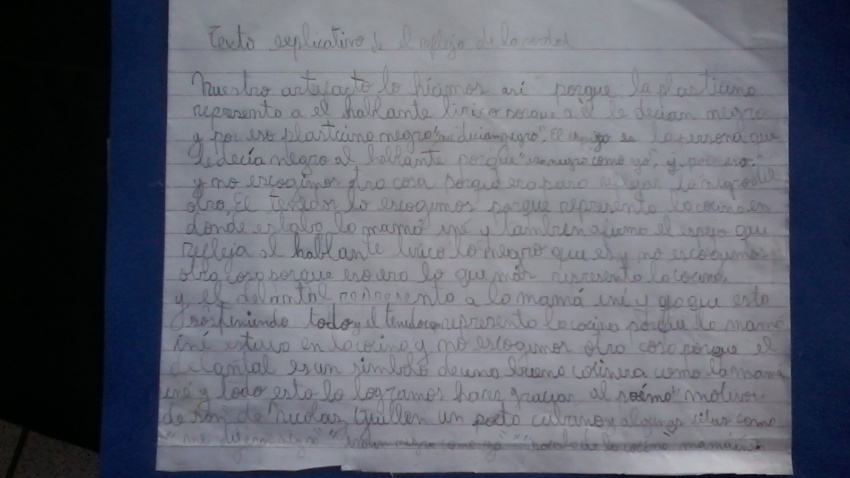 Texto explicativo de el reflejo de la verdad
Nuestro artefacto lo hicimos así porque la plasticina
representa a el hablante lírico porque a él le decían negro
y por eso plasticina negra "me dician negro". El espejo es la persona que
le decía negro al hablante porque "es negro como yo", y por eso
y no escogimos otra cosa porque era para reflejar lo negro del
otro. El tenedor lo escogimos porque representa la cocina en
donde estaba la mamá iné y tambien afirma el espejo que
refleja al hablante lírico lo negro que es y no escogimos
otra cosa porque eso era lo que más representa la cocina,
y el delantal representa a la mamá iné y ya que esta
sosteniendo todo y el tenedor representa la cocina porque la mamá
iné estuvo en la cocina y no escogimos otra cosa porque el
delantal es un simbolo de una buena cocinera como la mamá
iné y todo esto lo logramos hacer gracias al poéma "motivos
de son" de Nicolas Guillen un poeta cubano y algunas citas como
"me dijeron negro" "negro como yo" "de la cocina" mamá iné.